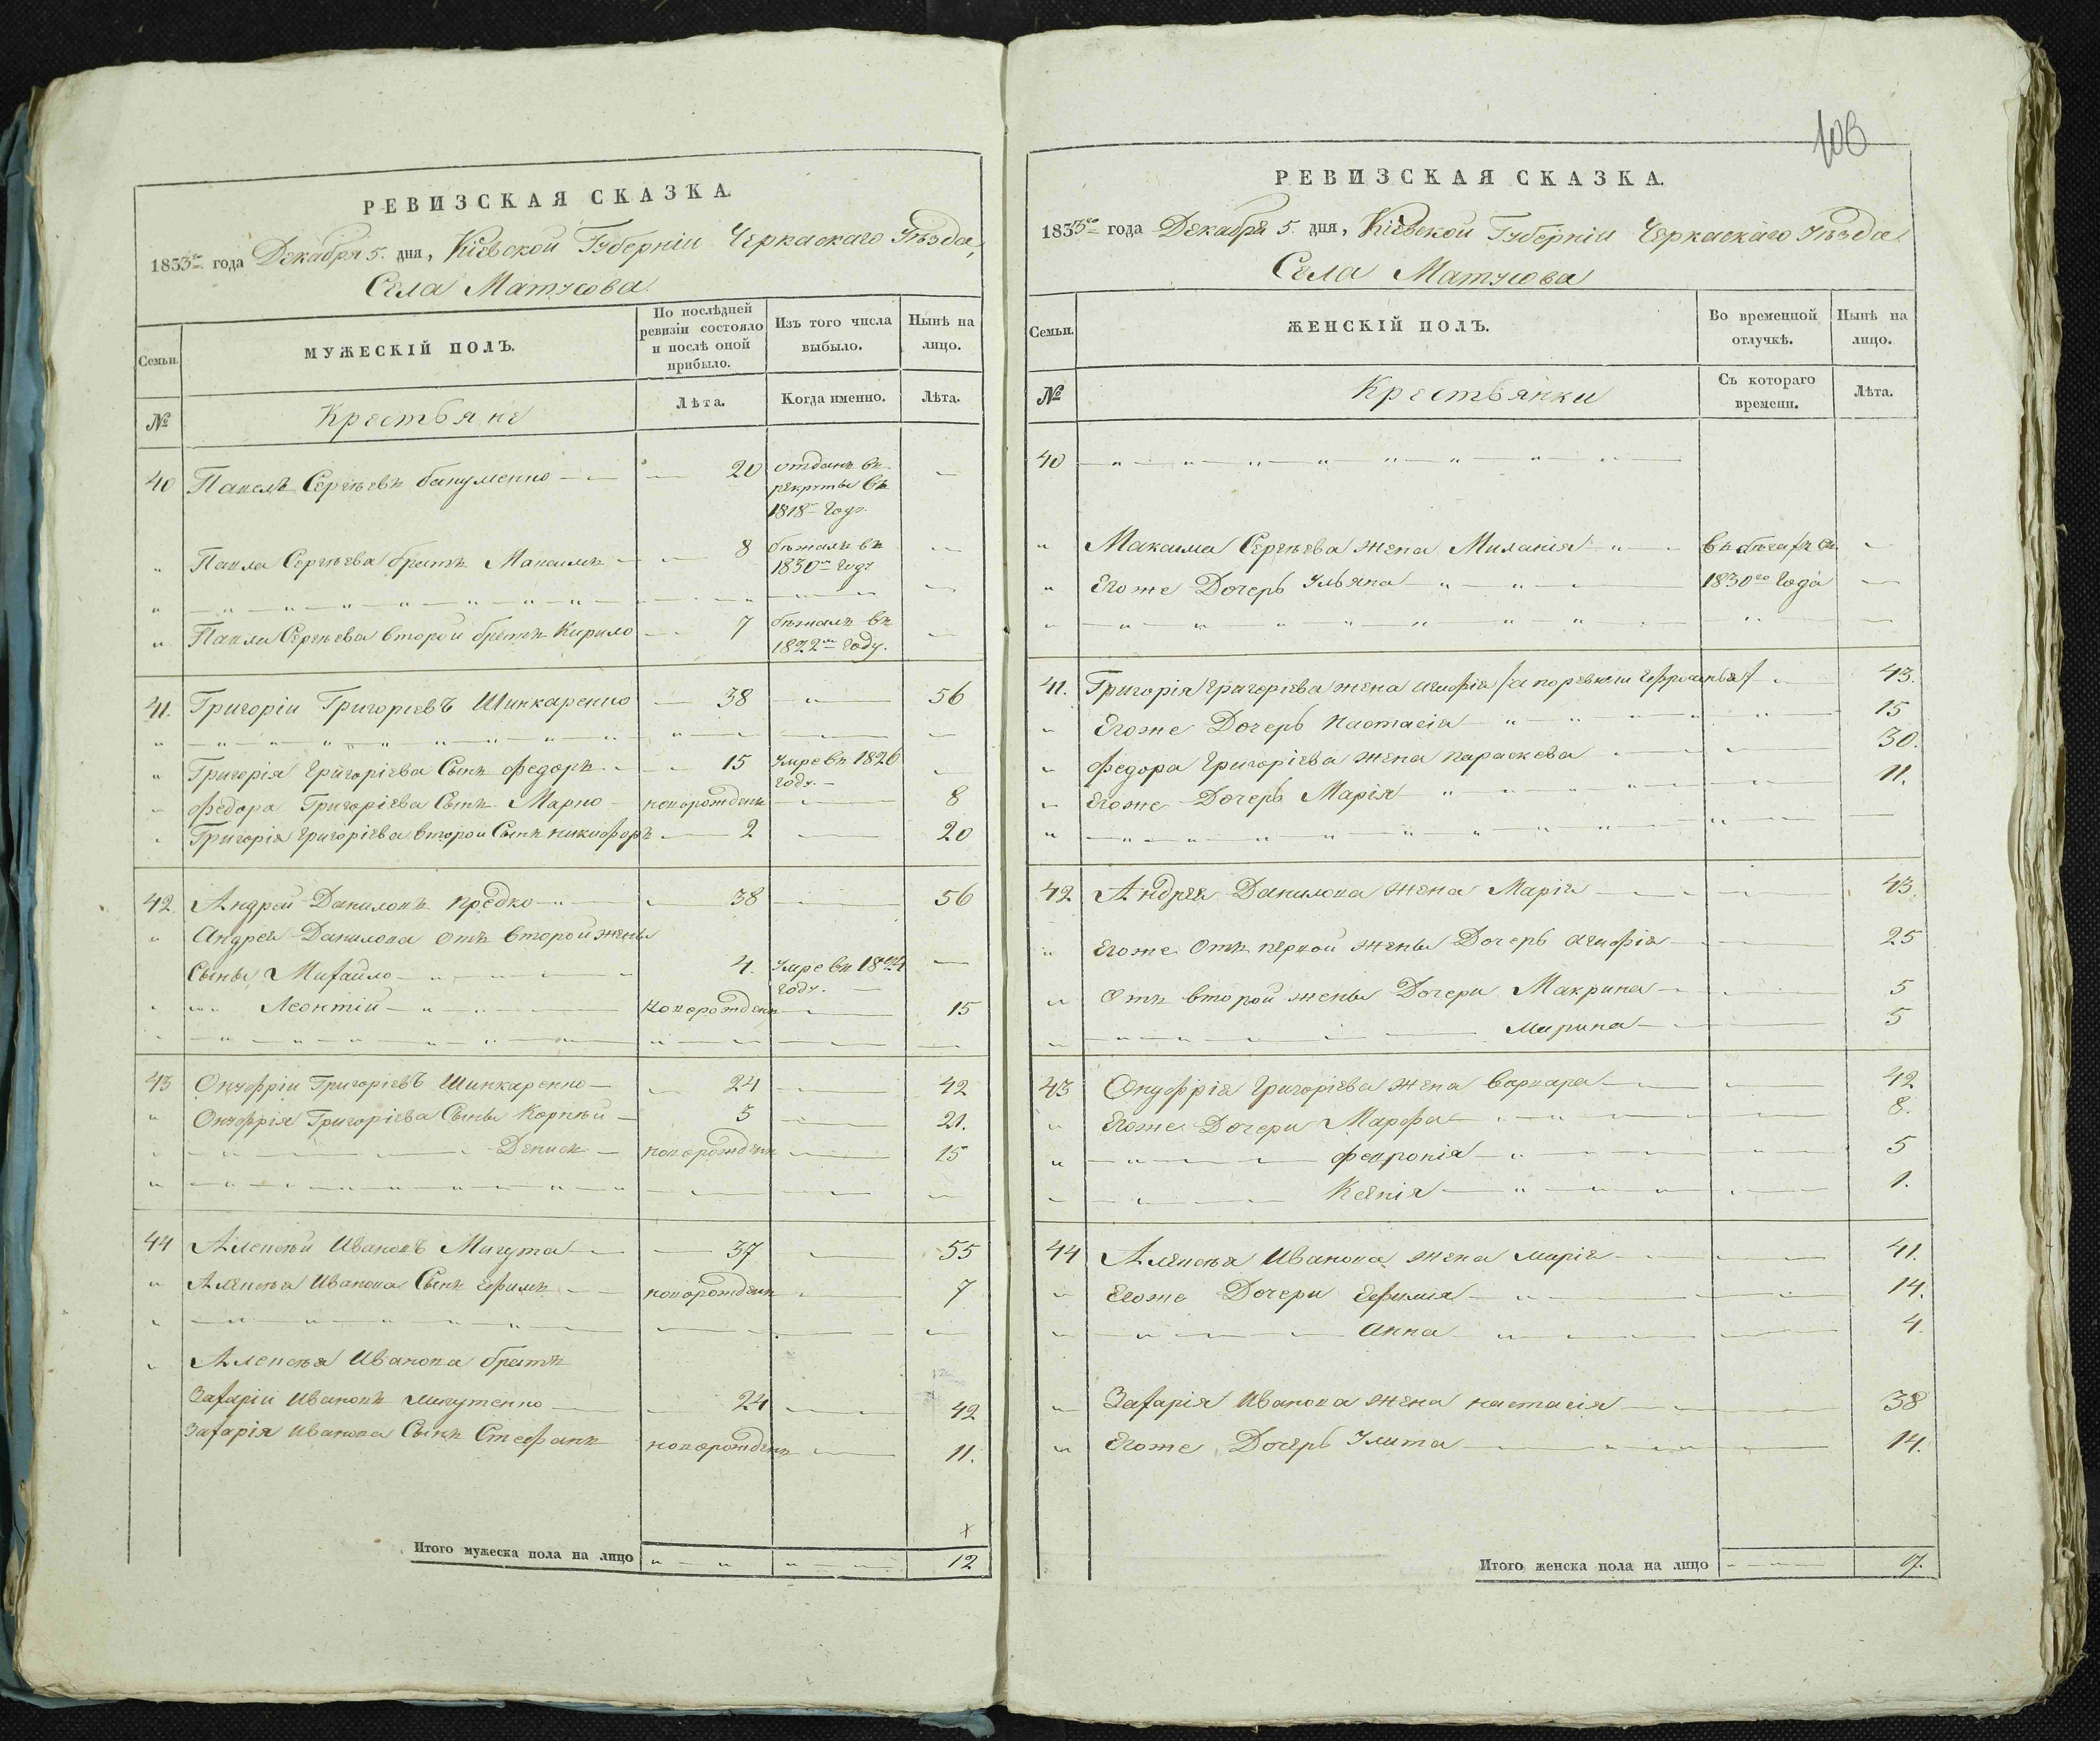 РЕВИЗСКАЯ СКАЗКА.
1833го года Декабря 5. дня, Кіевской Губерніи Черкаскаго Уѣзда,
Села Матусова.
Семьи.
МУЖЕСКІЙ ПОЛЪ.
По послѣдней ревизіи состояло и послѣ оной прибыло.
Изъ того числа выбыло.
Нынѣ на лицо.
№
Крестьяне
Лѣта.
Когда именно.
Лѣта.
40 Павелъ Сергѣевъ 20 отданъ въ
рекруты въ
1818м году.
Павла Сергѣева братъ Максимъ 8 бѣжалъ въ
1830м году
Павла Сергѣева второй братъ Кирило 7 бѣжалъ въ
1822м году.
41. Григорій Григорьевъ Шинкаренко 38 56
Григорія Григоріева Сынъ Федоръ 15 умре въ 1826
году.
Федора Григоріева Сынъ Марко новорожденъ 8
Григорія Григоріева второй Сынъ Никифоръ 2 20
42 Андрей Даниловъ Предко 38 56
Андрея Данилова отъ второй жены
Сыны Михайло 4. умре въ 1824
году.
Леонтій новорожденъ 15
43 Онуфрій Григоріевъ Шинкаренко 24 42
Онуфрія Григоріева Сыны Корнѣй 3 21.
Денисъ новорожденъ 15
44 Алексѣй Ивановъ Мигута 37 55
Алексѣя Иванова Сынъ Ефимъ новорожденъ 7
Алексѣя Иванова братъ
Захарій Ивановъ Мигутенко 24 42
Захарія Иванова Сынъ Стефанъ новорожденъ 11.
Итого мужеска пола на лицо 12
РЕВИЗСКАЯ СКАЗКА.
1833го года Декабря 5. дня, Кіевской Губерніи Черкаскаго Уѣзда
Села Матусова
Семьи.
ЖЕНСКІЙ ПОЛЪ.
Во временной отлучкѣ.
Нынѣ на лицо.
№
Крестьянки
Съ котораго времени.
Лѣта.
40
Максима Сергѣева жена Миланія въ бѣгахъ съ
Егоже Дочерь Ульяна 1830го года
41. Григорія Григоріева жена Агафія 43.
Егоже Дочерь Настасія 15
Федора Григоріева жена Параскева 30.
Егоже Дочерь Марія 11.
42 Андрея Данилова жена Марія 43.
Егоже отъ первой жены Дочерь Агафія 25
Отъ второй жены Дочери Макрина 5
Марина 5
43 Онуфрія Григоріева жена Варвара 42
Егоже Дочери Марфа 8.
Февронія 5
Ксенія 1.
44 Алексѣя Иванова жена Марія 41.
Егоже Дочери Ефимія 14.
Анна 4.
Захарія Иванова жена Настасія 38
Егоже Дочерь Улита 14.
Итого женска пола на лицо 17.